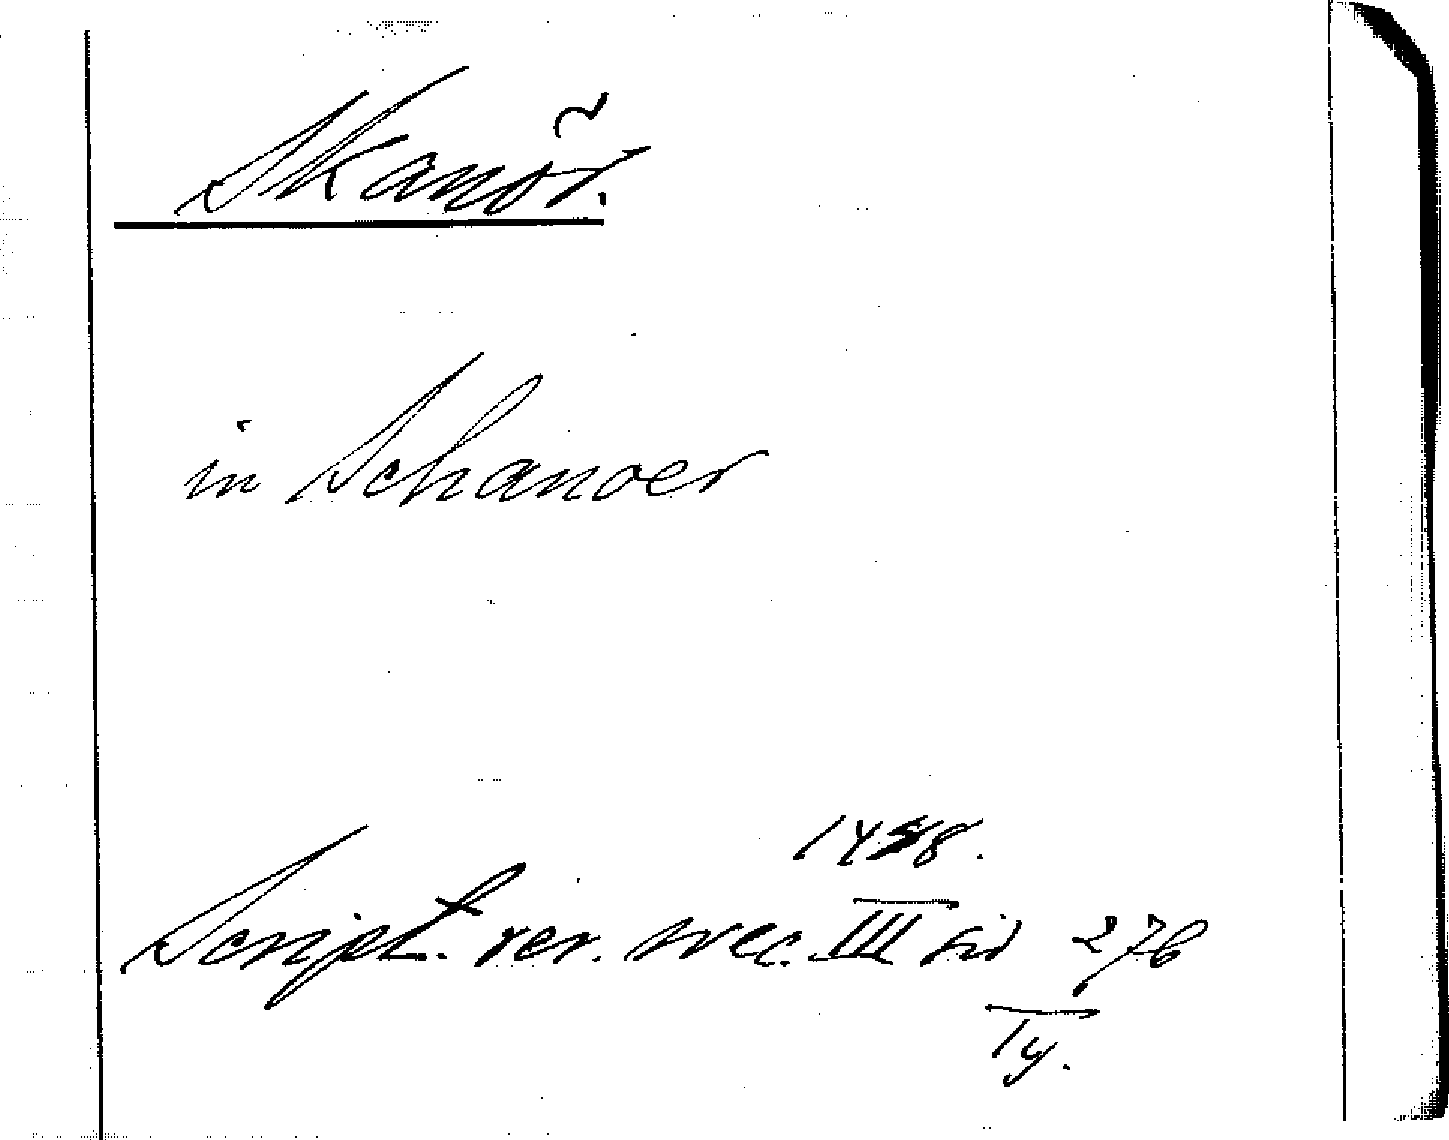 Skanör.
in Schanoer
1458.
Script. rer. svec. III sid 276
Ty.